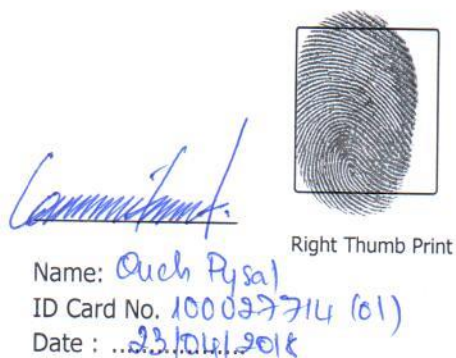 Right Thumb Print
Name: Ouch Pysal
ID Card No. 100027714 (01)
Date : 23/04/2018